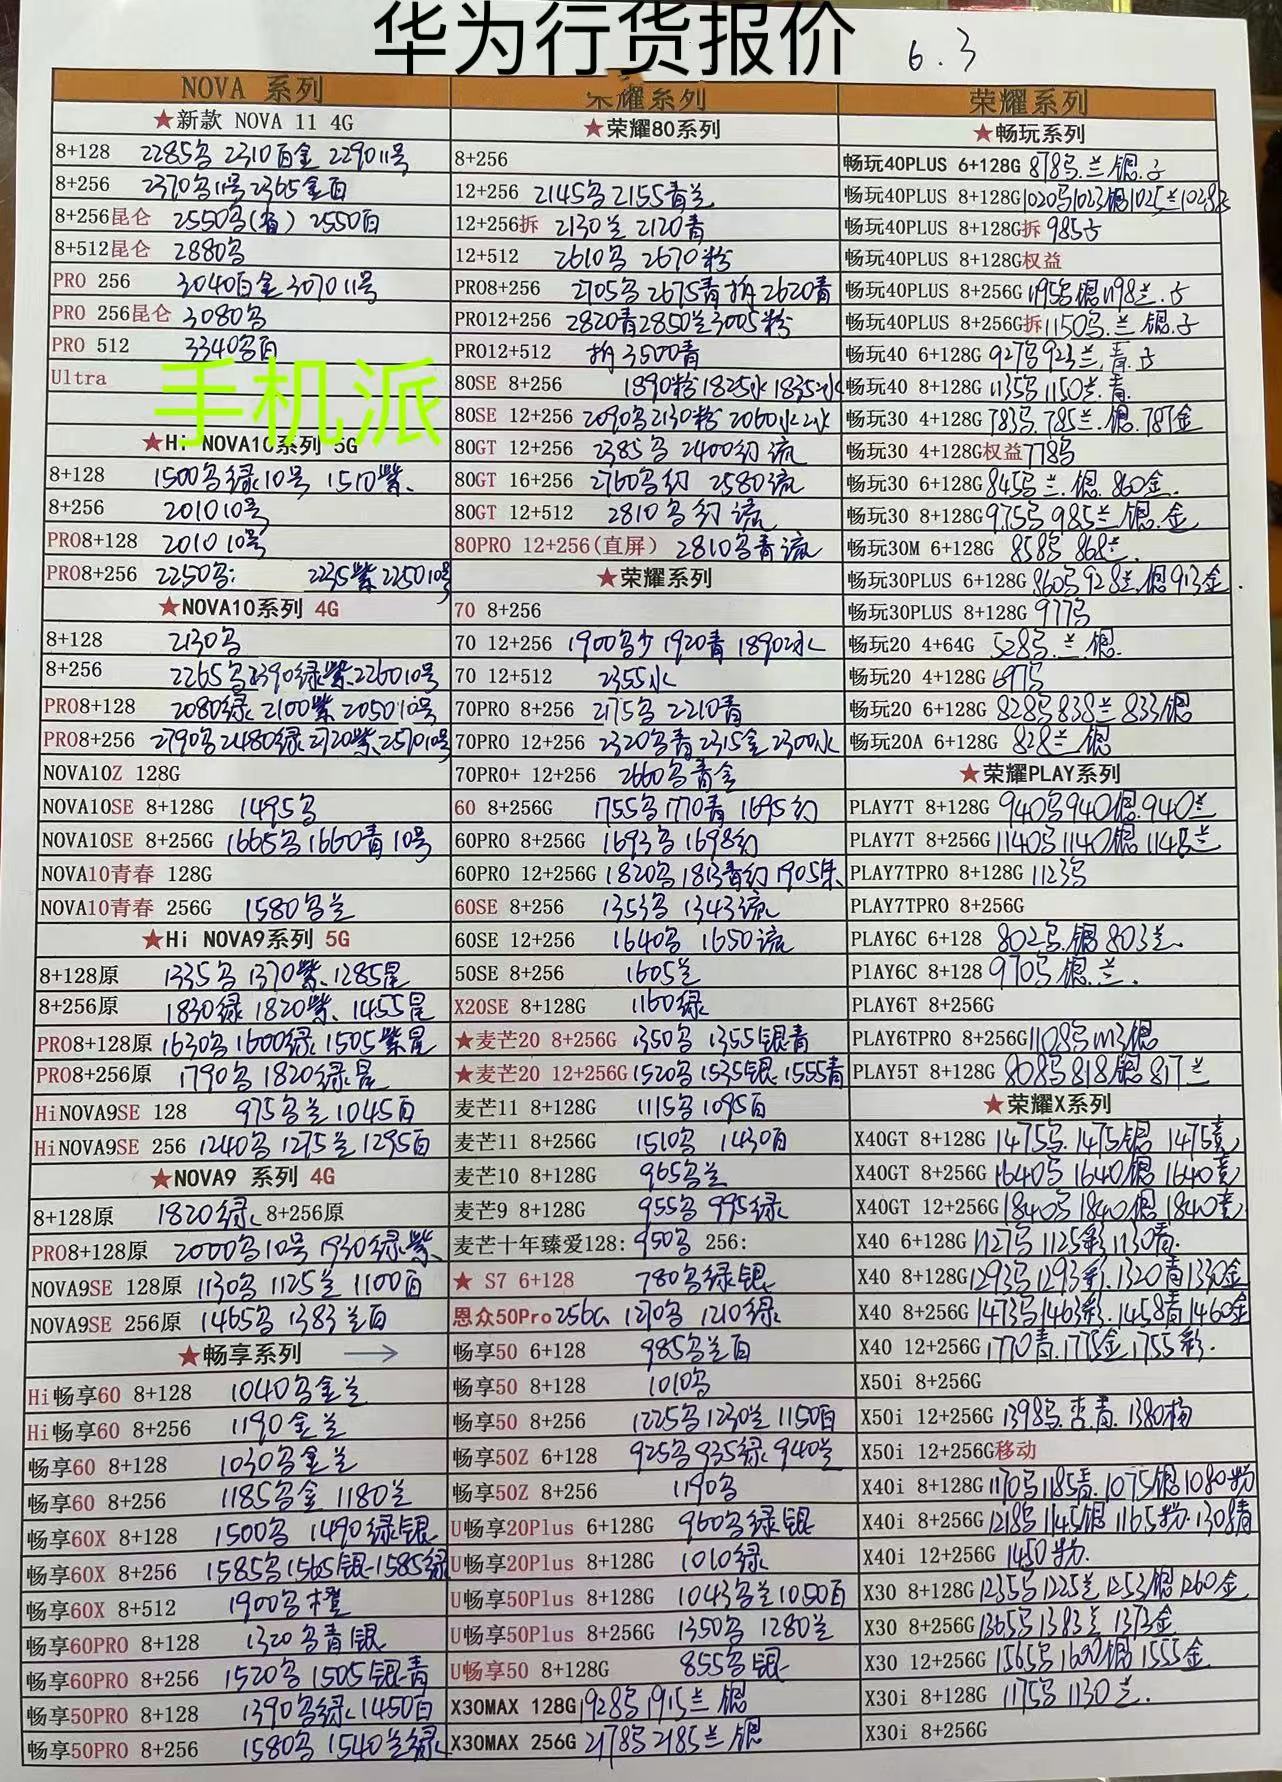 华为行货报价 6.3
NOVA 系列
★新款 NOVA 11 4G
8+128 2285乌 2310白金 2290 11号
8+256 2370乌11号 2365金白
8+256昆仑 2550乌(省) 2550白
8+512昆仑 2880乌
PRO 256 3040白金 3070 11号
PRO 256昆仑 3080乌
PRO 512 3340乌白
Ultra
手机派
★Hi NOVA10系列 5G
8+128 1500乌绿10号 1510紫
8+256 2010 10号
PRO8+128 2010 10号
PRO8+256 2250乌: 2235紫 2250 10号
★NOVA10系列 4G
8+128 2130乌
8+256 2265乌2390绿紫2260 10号
PRO8+128 2080绿 2100紫 2050 10号
PRO8+256 2790乌2480绿2720紫2570 10号
NOVA10Z 128G
NOVA10SE 8+128G 1495乌
NOVA10SE 8+256G 1665乌1660青10号
NOVA10青春 128G
NOVA10青春 256G 1580乌兰
★Hi NOVA9系列 5G
8+128原 1335乌 1370紫、1285星
8+256原 1830绿 1820紫、1455星
PRO8+128原 1630乌1600绿1505紫星
PRO8+256原 1790乌 1820绿星
HiNOVA9SE 128 975乌兰1045白
HiNOVA9SE 256 1240乌 1275兰1295白
★NOVA9 系列 4G
8+128原 1820绿 8+256原
PRO8+128原 2000乌10号 1930绿紫
NOVA9SE 128原 1130乌 1125兰 1100白
NOVA9SE 256原 1465乌 1383兰白
★畅享系列 →
Hi畅享60 8+128 1040乌金兰
Hi畅享60 8+256 1190金兰
畅享60 8+128 1030乌金兰
畅享60 8+256 1185乌金 1180兰
畅享60X 8+128 1500乌 1490绿银
畅享60X 8+256 1585乌1565银1585绿
畅享60X 8+512 1900乌橙
畅享60PRO 8+128 1320乌青银
畅享60PRO 8+256 1520乌1505银青
畅享50PRO 8+128 1390乌绿1450白
畅享50PRO 8+256 1580乌 1540兰绿
荣耀系列
★荣耀80系列
8+256
12+256 2145乌 2155青兰
12+256拆 2130兰 2120青
12+512 2610乌 2670粉
PRO8+256 2705乌2675青拆2620青
PRO12+256 2820青2850兰3005粉
PRO12+512 拆3500青
80SE 8+256 1890粉1825水1835冰
80SE 12+256 2090乌2130粉2060水冰
80GT 12+256 2385乌 2400幻流
80GT 16+256 2760乌幻 2580流
80GT 12+512 2810乌幻流
80PRO 12+256(直屏) 2810乌青流
★荣耀系列
70 8+256
70 12+256 1900乌 1920青 1890冰
70 12+512 2355水
70PRO 8+256 2175乌 2210青
70PRO 12+256 2320乌青2315金2300水
70PRO+ 12+256 2660乌青金
60 8+256G 1755乌1770青 1695幻
60PRO 8+256G 1693乌 1698幻
60PRO 12+256G 1820乌1813青幻1905朱
60SE 8+256 1353乌 1343流
60SE 12+256 1640乌 1650流
50SE 8+256 1605兰
X20SE 8+128G 1160绿
★麦芒20 8+256G 1350乌 1355银青
★麦芒20 12+256G 1520乌1535银1555青
麦芒11 8+128G 1115乌1095白
麦芒11 8+256G 1510乌 1430白
麦芒10 8+128G 965乌兰
麦芒9 8+128G 955乌 995绿
麦芒十年臻爱128: 950乌 256:
★ S7 6+128 780乌绿银
恩众50Pro 256G 1270乌 1210绿
畅享50 6+128 985乌兰白
畅享50 8+128 1010乌
畅享50 8+256 1225乌1230兰1150白
畅享50Z 6+128 925乌935绿940兰
畅享50Z 8+256 1190乌
U畅享20Plus 6+128G 960乌绿银
U畅享20Plus 8+128G 1010绿
U畅享50Plus 8+128G 1043乌兰1050白
U畅享50Plus 8+256G 1350乌 1280兰
U畅享50 8+128G 855乌银
X30MAX 128G 1928乌1915兰 银
X30MAX 256G 2178乌 2185兰银
荣耀系列
★畅玩系列
畅玩40PLUS 6+128G 878乌.兰.银.子
畅玩40PLUS 8+128G 1020乌1023银1025兰1028
畅玩40PLUS 8+128G拆 985
畅玩40PLUS 8+128G权益
畅玩40PLUS 8+256G 1195乌银1198兰.
畅玩40PLUS 8+256G拆 1150乌.兰.银.子
畅玩40 6+128G 927乌923兰.青.
畅玩40 8+128G 1135乌1150兰.青
畅玩30 4+128G 783乌.785兰.银.787金
畅玩30 4+128G权益 778乌
畅玩30 6+128G 845乌兰.银.860金.
畅玩30 8+128G 975乌985兰.银.金
畅玩30M 6+128G 858乌 868兰.
畅玩30PLUS 6+128G 860乌928兰.银913金.
畅玩30PLUS 8+128G 977乌
畅玩20 4+64G 528乌.兰.银.
畅玩20 4+128G 697乌
畅玩20 6+128G 828乌838兰833银
畅玩20A 6+128G 828兰.银
★荣耀PLAY系列
PLAY7T 8+128G 940乌940银.940兰
PLAY7T 8+256G 1140乌1140银1148兰
PLAY7TPRO 8+128G 1123乌
PLAY7TPRO 8+256G
PLAY6C 6+128 802乌.银803兰.
PlAY6C 8+128 970乌银.兰.
PLAY6T 8+256G
PLAY6TPRO 8+256G 1108乌1113银
PLAY5T 8+128G 808乌818银817兰
★荣耀X系列
X40GT 8+128G 1475乌.1475银 1475竞
X40GT 8+256G 1640乌1640银1640竞
X40GT 12+256G 1840乌1840银1840竞
X40 6+128G 1127乌1125彩1130青.
X40 8+128G 1293乌1293彩.1320青1330金
X40 8+256G 1473乌1463彩.1458青1460金
X40 12+256G 1770青.1775金1755彩.
X50i 8+256G
X50i 12+256G 1398乌.杏.青.1380杨
X50i 12+256G移动
X40i 8+128G 1170乌1185青.1075银1080粉
X40i 8+256G 1218乌1145银1165粉.1308精
X40i 12+256G 1450粉.
X30 8+128G 1235乌1225兰1253银1260金
X30 8+256G 1365乌1383兰 1373金
X30 12+256G 1565乌1600银1555金
X30i 8+128G 1175乌1130兰.
X30i 8+256G